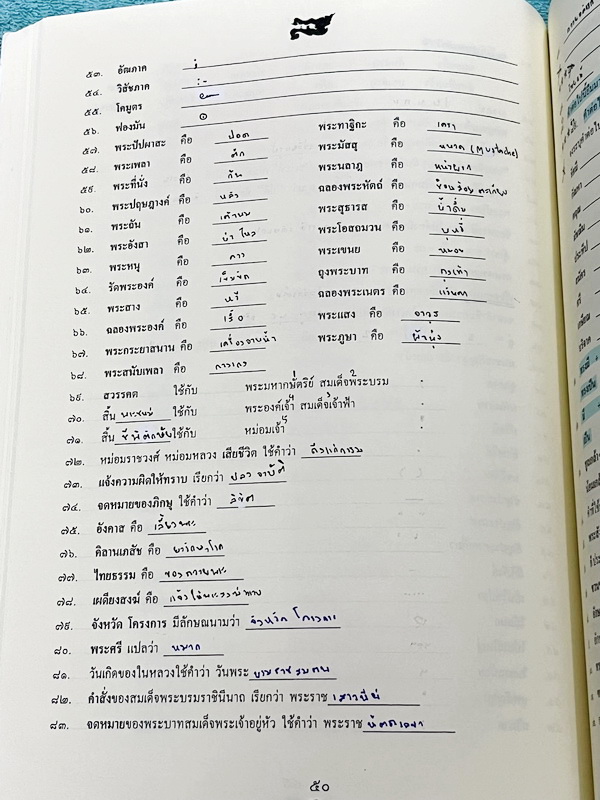 ๕๓. อัฒภาค ;
๕๔. วิสัชภาค :-
๕๕. โคมูตร ๛
๕๖. ฟองมัน ๏
๕๗. พระปัปผาสะ คือ ปอด พระทาฐิกะ คือ เครา
๕๘. พระเพลา คือ ตัก พระมัสสุ คือ หนวด (Mustache)
๕๙. พระที่นั่ง คือ ก้น พระนลาฏ คือ หน้าผาก
๖๐. พระปฤษฎางค์ คือ หลัง ฉลองพระหัตถ์ คือ ช้อนส้อม ตะเกียบ
๖๑. พระถัน คือ เต้านม พระสุธารส คือ น้ำดื่ม
๖๒. พระอังสา คือ บ่า ไหล่ พระโอสถมวน คือ บุหรี่
๖๓. พระหนุ คือ คาง พระเขนย คือ หมอน
๖๔. รัดพระองค์ คือ เข็มขัด ถุงพระบาท คือ ถุงเท้า
๖๕. พระสาง คือ หวี ฉลองพระเนตร คือ แว่นตา
๖๖. ฉลองพระองค์ คือ เสื้อ พระแสง คือ อาวุธ
๖๗. พระกระยาสนาน คือ เครื่องอาบน้ำ พระภูษา คือ ผ้านุ่ง
๖๘. พระสนับเพลา คือ กางเกง
๖๙. สวรรคต ใช้กับ พระมหากษัตริย์ สมเด็จพระบรม
๗๐. สิ้น พระชนม์ ใช้กับ พระองค์เจ้า สมเด็จเจ้าฟ้า
๗๑. สิ้น ชีพิตักษัย ใช้กับ หม่อมเจ้า
๗๒. หม่อมราชวงศ์ หม่อมหลวง เสียชีวิต ใช้คำว่า ถึงแก่กรรม
๗๓. แจ้งความผิดให้ทราบ เรียกว่า ปลงอาบัติ
๗๔. จดหมายของภิกษุ ใช้คำว่า ลิขิต
๗๕. อังคาส คือ เลี้ยงพระ
๗๖. คิลานเภสัช คือ ยารักษาโรค
๗๗. ไทยธรรม คือ ของถวายพระ
๗๘. เผดียงสงฆ์ คือ แจ้งให้พระสงฆ์ทราบ
๗๙. จังหวัด โครงการ มีลักษณนามว่า จังหวัด โครงการ
๘๐. พระศรี แปลว่า หมาก
๘๑. วันเกิดของในหลวงใช้คำว่า วันพระ บรมราชสมภพ
๘๒. คำสั่งของสมเด็จพระบรมราชินีนาถ เรียกว่า พระราช เสาวนีย์
๘๓. จดหมายของพระบาทสมเด็จพระเจ้าอยู่หัว ใช้คำว่า พระราช หัตถเลขา
๕๐